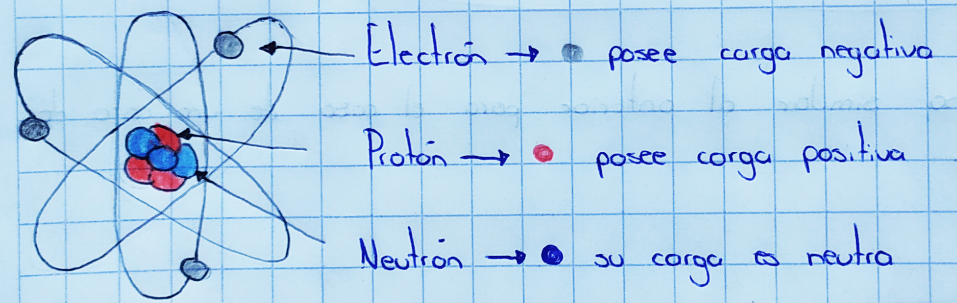 Electrón → posee carga negativa
Protón → posee carga positiva
Neutrón → su carga es neutra